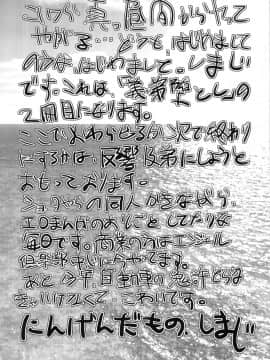 コイツら真っ昼間からヤって
やがる…どうも、はじめまして
の方は、はじめまして。しまじ
です。これは、「裏弟契」としての
2冊目になります。
ここでおわらせるか次で終わり
にするかは、反響次第にしようと
おもっております。
ショタやらの同人がきながら、
エロまんがのありごとしてたりな
毎日です。商業の方はエンジェル
倶楽部中心にやってます。
あと今年、自動車の免許とらな
きゃいけなくて こわいです。
にんげんだもの しまじ